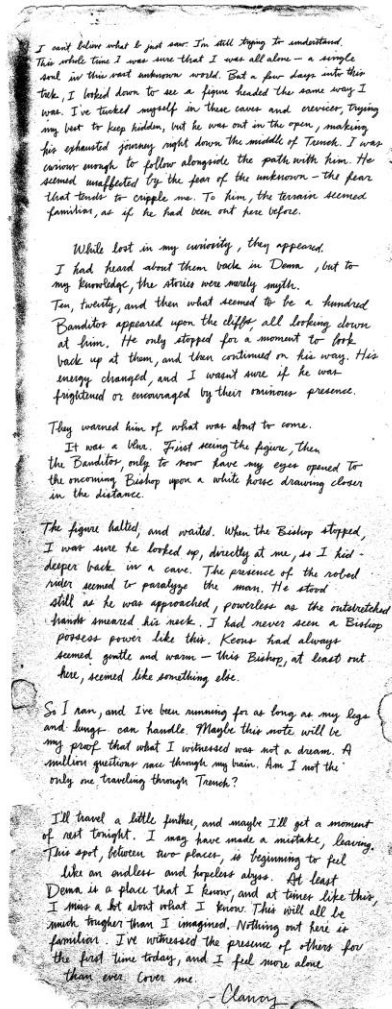 I can't believe what I just saw. I'm still trying to understand.
This whole time I was sure that I was all alone — a single
soul in this vast unknown world. But a few days into this
trek, I looked down to see a figure headed the same way I
was. I've tucked myself in these caves and crevices, trying
my best to keep hidden, but he was out in the open, making
his exhausted journey right down the middle of Trench. I was
curious enough to follow alongside the path with him. He
seemed unaffected by the fear of the unknown — the fear
that tends to cripple me. To him, the terrain seemed
familiar, as if he had been out here before.
While lost in my curiosity, they appeared.
I had heard about them back in Dema, but to
my knowledge, the stories were merely myth.
Ten, twenty, and then what seemed to be a hundred
Banditos appeared upon the cliffs, all looking down
at him. He only stopped for a moment to look
back up at them, and then continued on his way. His
energy changed, and I wasn't sure if he was
frightened or encouraged by their ominous presence.
They warned him of what was about to come.
It was a blur. First seeing the figure, then
the Banditos, only to now have my eyes opened to
the oncoming Bishop upon a white horse drawing closer
in the distance.
The figure halted, and waited. When the Bishop stopped,
I was sure he looked up, directly at me, so I hid
deeper back in a cave. The presence of the robed
rider seemed to paralyze the man. He stood
still as he was approached, powerless as the outstretched
hands smeared his neck. I had never seen a Bishop
possess power like this. Keons had always
seemed gentle and warm — this Bishop, at least out
here, seemed like something else.
So I ran, and I've been running for as long as my legs
and lungs can handle. Maybe this note will be
my proof that what I witnessed was not a dream. A
million questions race through my brain. Am I not the
only one traveling through Trench?
I'll travel a little further, and maybe I'll get a moment
of rest tonight. I may have made a mistake, leaving.
This spot, between two places, is beginning to feel
like an endless and hopeless abyss. At least
Dema is a place that I know, and at times like this,
I miss a lot about what I know. This will all be
much tougher than I imagined. Nothing out here is
familiar. I've witnessed the presence of others for
the first time today, and I feel more alone
than ever. Cover me.
- Clancy